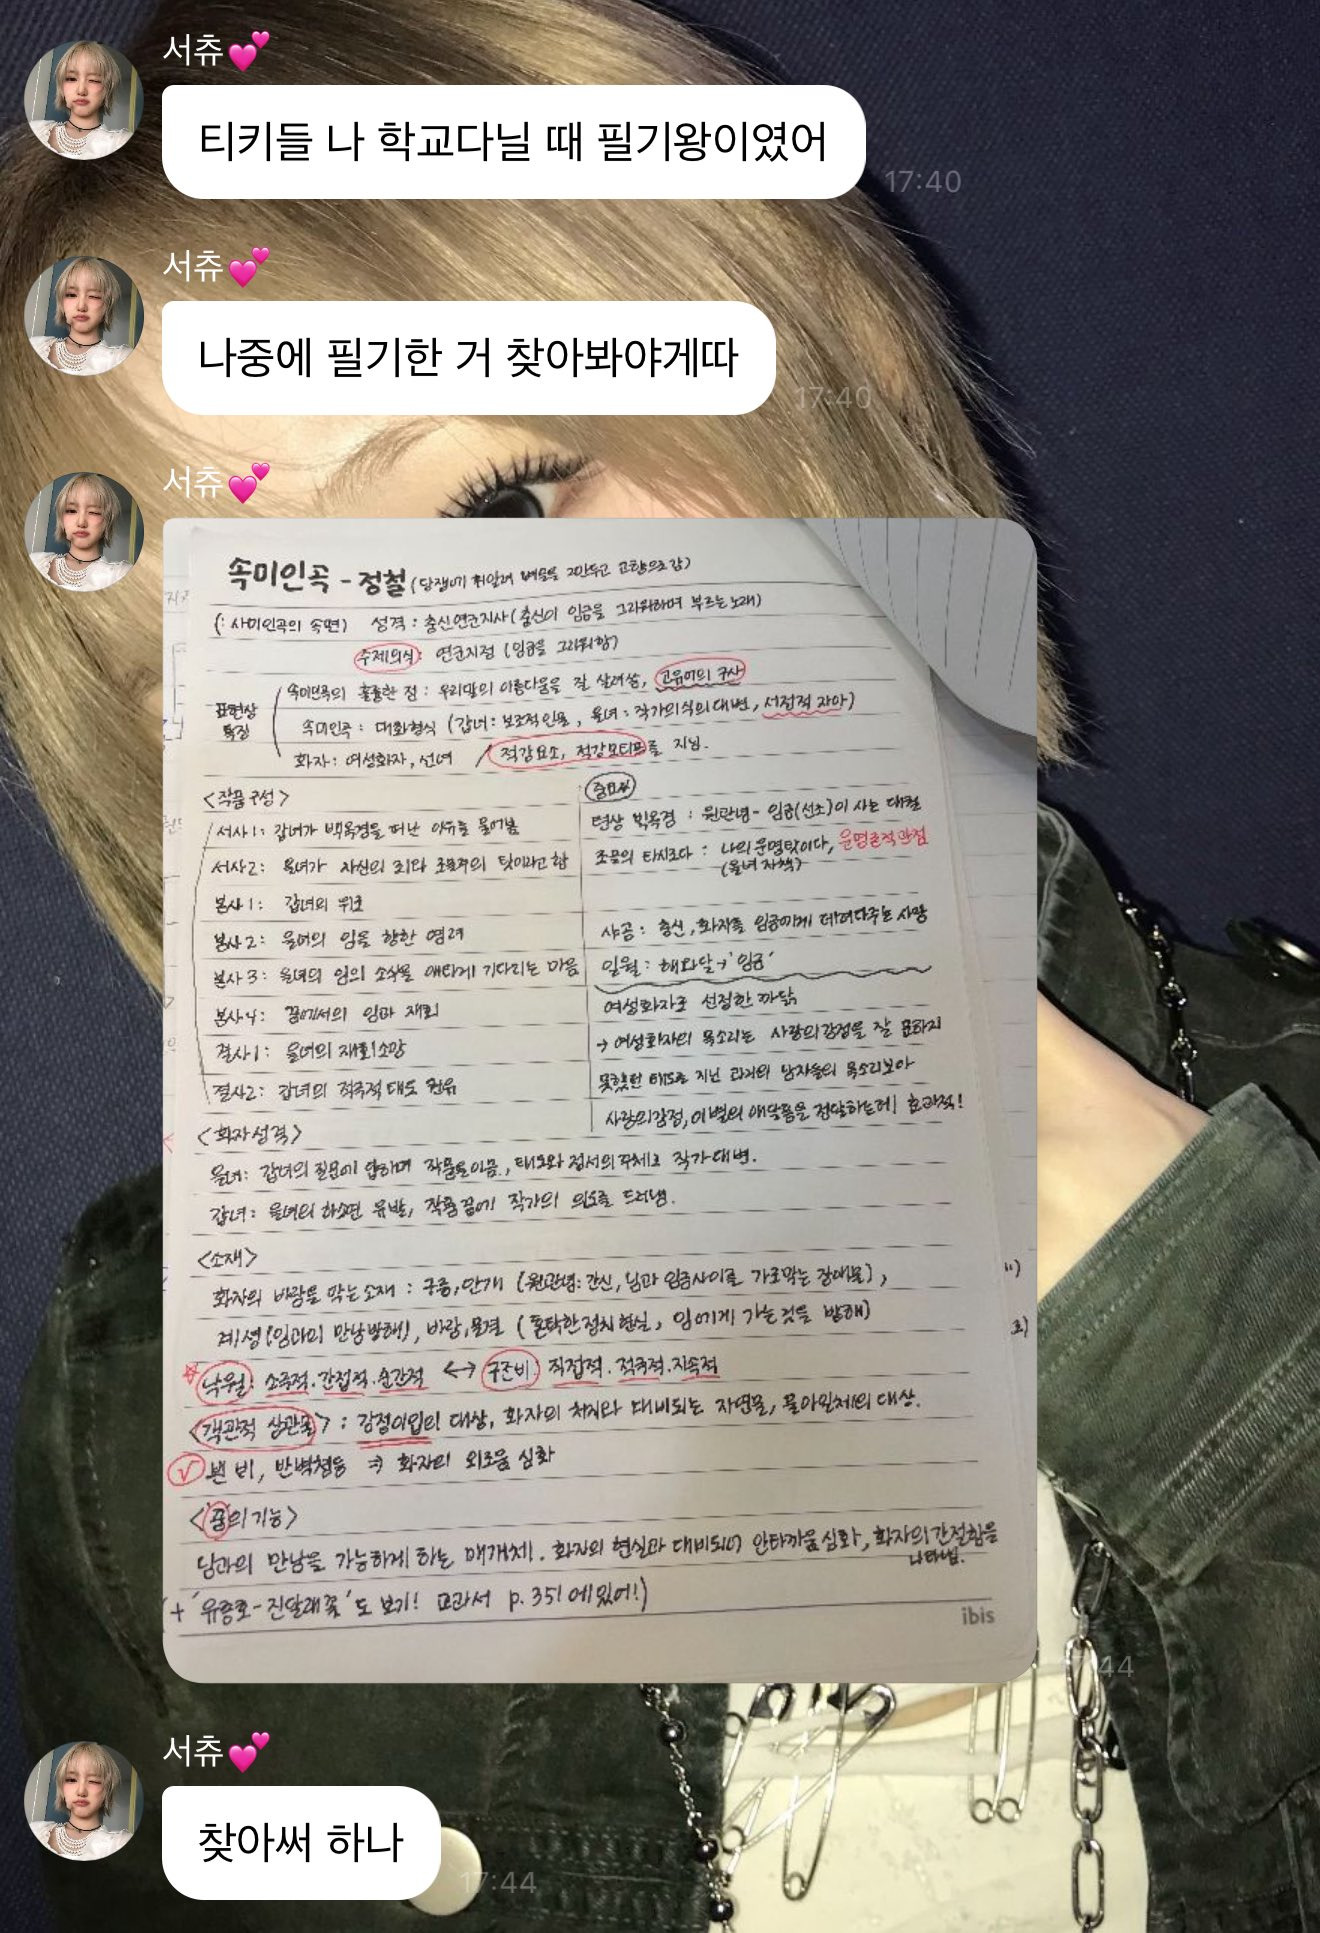 서츄💕
티키들 나 학교다닐 때 필기왕이였어
17:40
서츄💕
나중에 필기한 거 찾아봐야게따
17:40
서츄💕
속미인곡 - 정철 (당쟁에 휘말려 벼슬을 그만두고 고향으로 감)
(: 사미인곡의 속편) 성격 : 충신연군지사 (충신이 임금을 그리워하며 부르는 노래)
주제의식: 연군지정 (임금을 그리워함)
표현상 특징
속미인곡의 훌륭한 점 : 우리말의 아름다움을 잘 살려씀, 고유어의 구사
속미인곡 : 대화형식 (갑녀 : 보조적인물, 을녀 : 작가의식의 대변, 서정적 자아)
화자 : 여성화자, 선녀 / 적강요소, 적강모티프를 지님.
<작품구성>
서사1: 갑녀가 백옥경을 떠난 이유를 물어봄
서사2: 을녀가 자신의 죄와 조물주의 탓이라고 함
본사1: 갑녀의 위로
본사2: 을녀의 임을 향한 염려
본사3: 을녀의 임의 소식을 애타게 기다리는 마음
본사4: 꿈에서의 임과 재회
결사1: 을녀의 재회소망
결사2: 갑녀의 적극적 태도 권유
중요
텬상 빅옥경 : 원관념- 임금(선조)이 사는 대궐
조물의 타시로다 : 나의 운명탓이다, 운명론적 관점
(을녀 자책)
샤공 : 충신, 화자를 임금에게 데려다주는 사람
일월 : 해와달→'임금'
여성화자로 선정한 까닭
→ 여성화자의 목소리는 사랑의 감정을 잘 표하지
못했던 태도를 지닌 과거의 남자들의 목소리보아
사랑의감정, 이별의 애달픔을 전달하는데 효과적!
<화자성격>
을녀: 갑녀의 질문에 답하며 작품을이끔, 태도와 정서의 주체로 작가대변.
갑녀: 을녀의 하소연 유발, 작품 끝에 작가의 의도를 드러냄.
<소재>
화자의 바람을 막는소재 : 구름, 안개 (원관념: 간신, 님과 임금사이를 가로막는 장애물),
계성(임과의 만남방해), 바람, 물결 (혼탁한 정치현실, 임에게 가는것을 방해)
낙월: 소극적·간접적·순간적 ↔ 구즌비: 직접적·적극적·지속적
<객관적 상관물> : 감정이입의 대상, 화자의 처지와 대비되는 자연물, 물아일체의 대상.
√ 뷘 비, 반벽청등 ⇒ 화자의 외로움 심화
<꿈의기능>
님과의 만남을 가능하게 하는 매개체. 화자의 현실과 대비되어 안타까움 심화, 화자의 간절함을
나타냄.
(+ '유응호-진달래꽃'도 보기! 교과서 p.351에있어!)
ibis
서츄💕
찾아써 하나
17:44